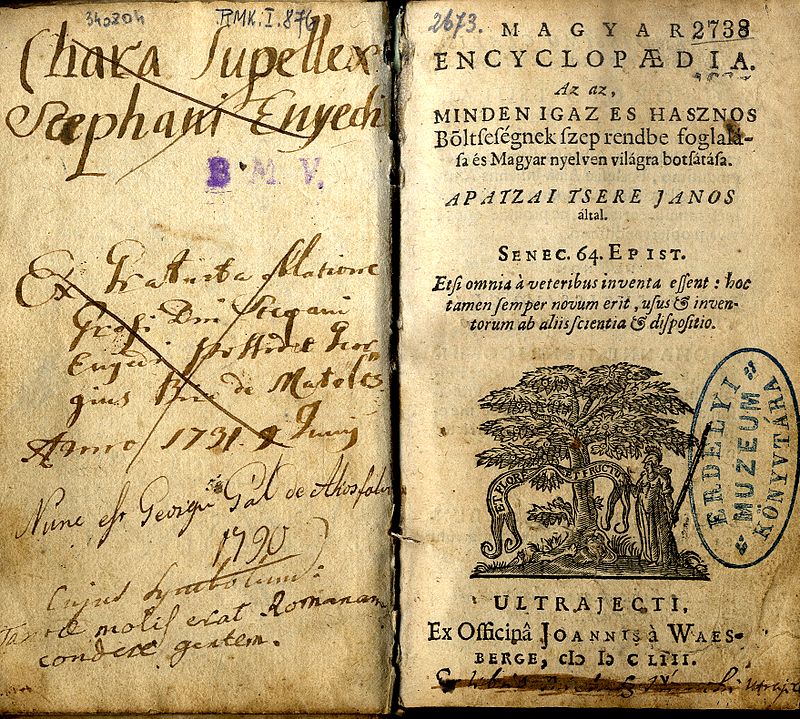 340204
RMK. I. 876
Chara Supellex
Stephani Enyedi
B. M. V.
Ex Gratuita oblatione
Stepani
Enyedi possidet Geor
gius de
Anno 1731. 9 Junij
Nunc est Georgii Gál de
1790
Cujus Symbolum:
Tantæ molis erat Romanam
condere gentem.
2673.
2738
MAGYAR
ENCYCLOPÆDIA.
Az az,
MINDEN IGAZ ES HASZNOS
Bőltseségnek ſzep rendbe foglalá-
ſa és Magyar nyelven világra botsátáſa.
APATZAI TSERE JANOS
által.
SENEC. 64. EPIST.
Etſi omnia à veteribus inventa eſſent: hoc
tamen ſemper novum erit, uſus & inven-
torum ab aliis ſcientia & diſpoſitio.
ET FLORE FRUCTU
ERDÉLYI
MUZEUM
KÖNYVTÁRA
ULTRAJECTI,
Ex Officinâ JOANNIS à WAES-
BERGE, cIɔ Iɔ CLIII.